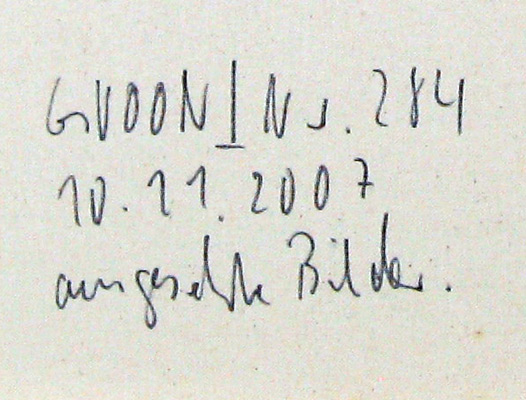 GVOON I Nr. 284
10.11.2007
Bilder.